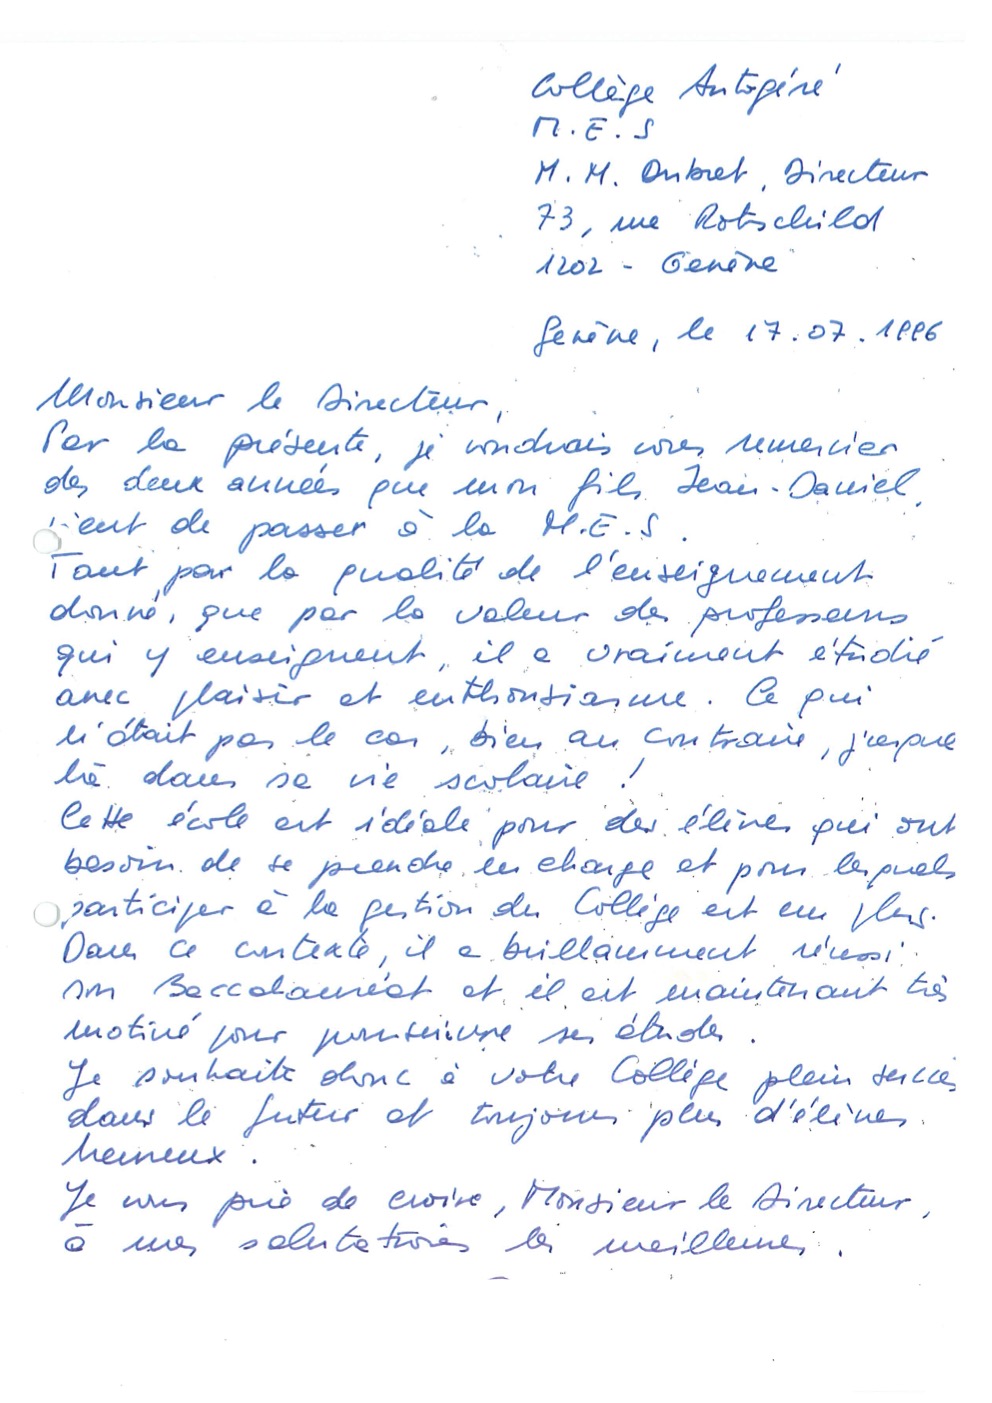 Collège Autogéré
M.E.S
M. M. Dubret, Directeur
73, rue Rotschild
1202 - Genève
Genève, le 17.07.1996
Monsieur le Directeur,
Par la présente, je voudrais vous remercier
des deux années que mon fils, Jean-Daniel,
vient de passer à la M.E.S.
Tant par la qualité de l'enseignement
donné, que par la valeur des professeurs
qui y enseignent, il a vraiment étudié
avec plaisir et enthousiasme. Ce qui
n'était pas le cas, bien au contraire, jusque
là dans sa vie scolaire !
Cette école est idéale pour des élèves qui ont
besoin de se prendre en charge et pour lesquels
participer à la gestion du Collège est un plus.
Dans ce contexte, il a brillamment réussi
son Baccalauréat et il est maintenant très
motivé pour poursuivre ses études.
Je souhaite donc à votre Collège plein succès
dans le futur et toujours plus d'élèves
heureux.
Je vous prie de croire, Monsieur le Directeur,
à mes salutations les meilleures.